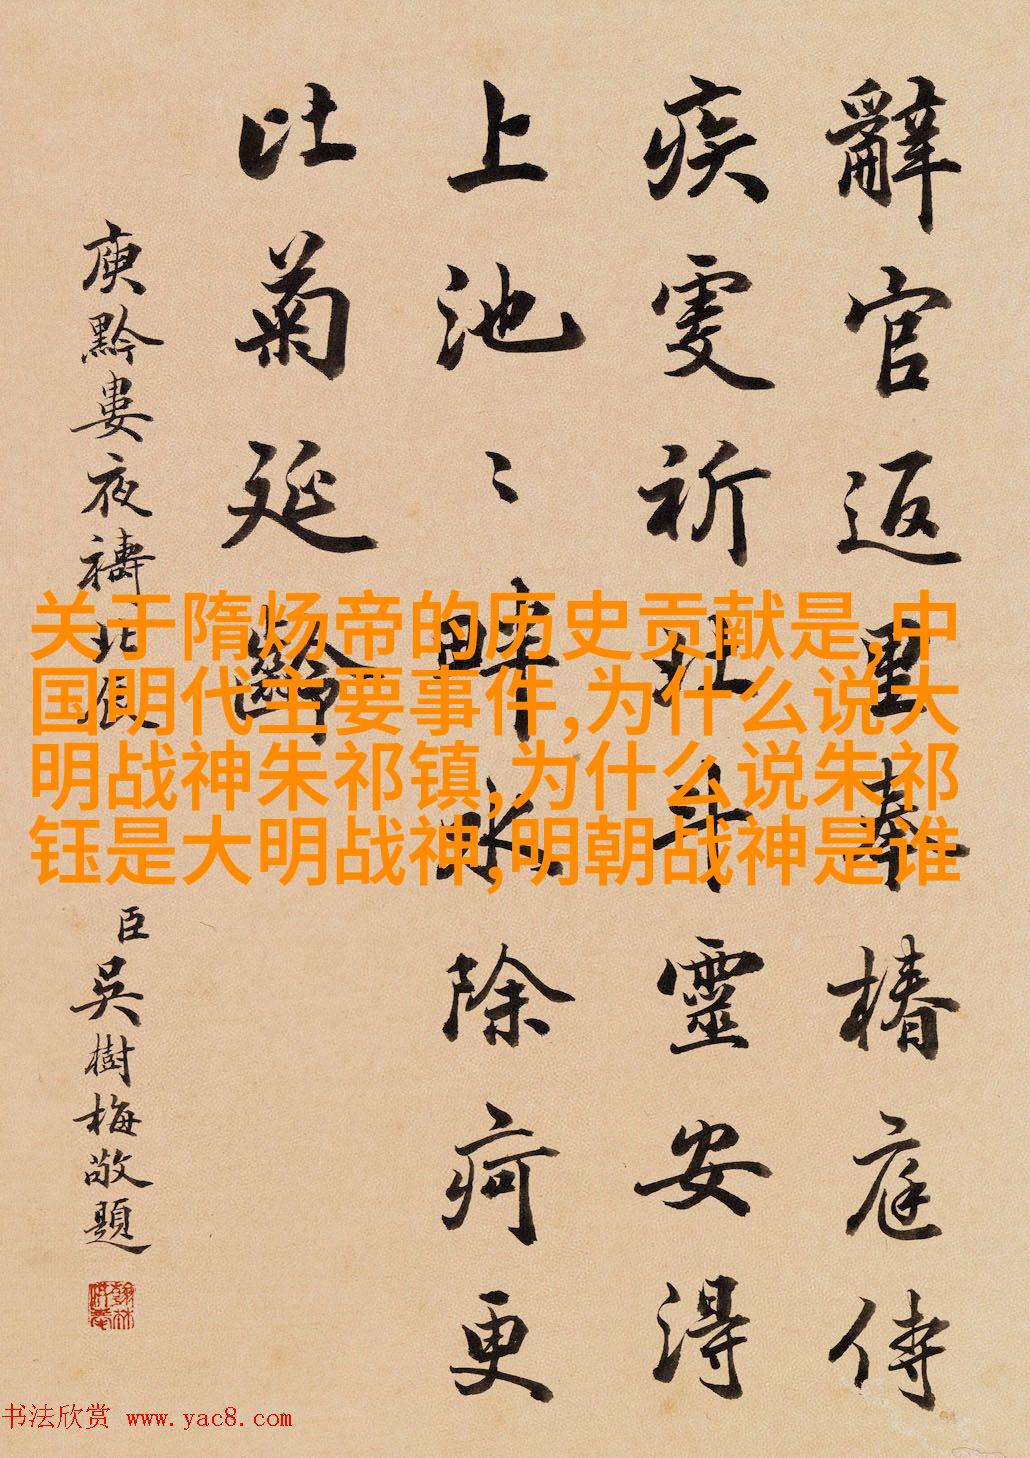 辭官返里奉椿庭侍
疾虔祈北斗靈安得
上池〻畔水除疴更
比菊延齡
庾黔婁夜禱北辰
臣吳樹梅敬題
关于隋炀帝的历史贡献是,中
国明代主要事件,为什么说大
明战神朱祁镇,为什么说朱祁
钰是大明战神,明朝战神是谁
书法欣赏 www.yac8.com